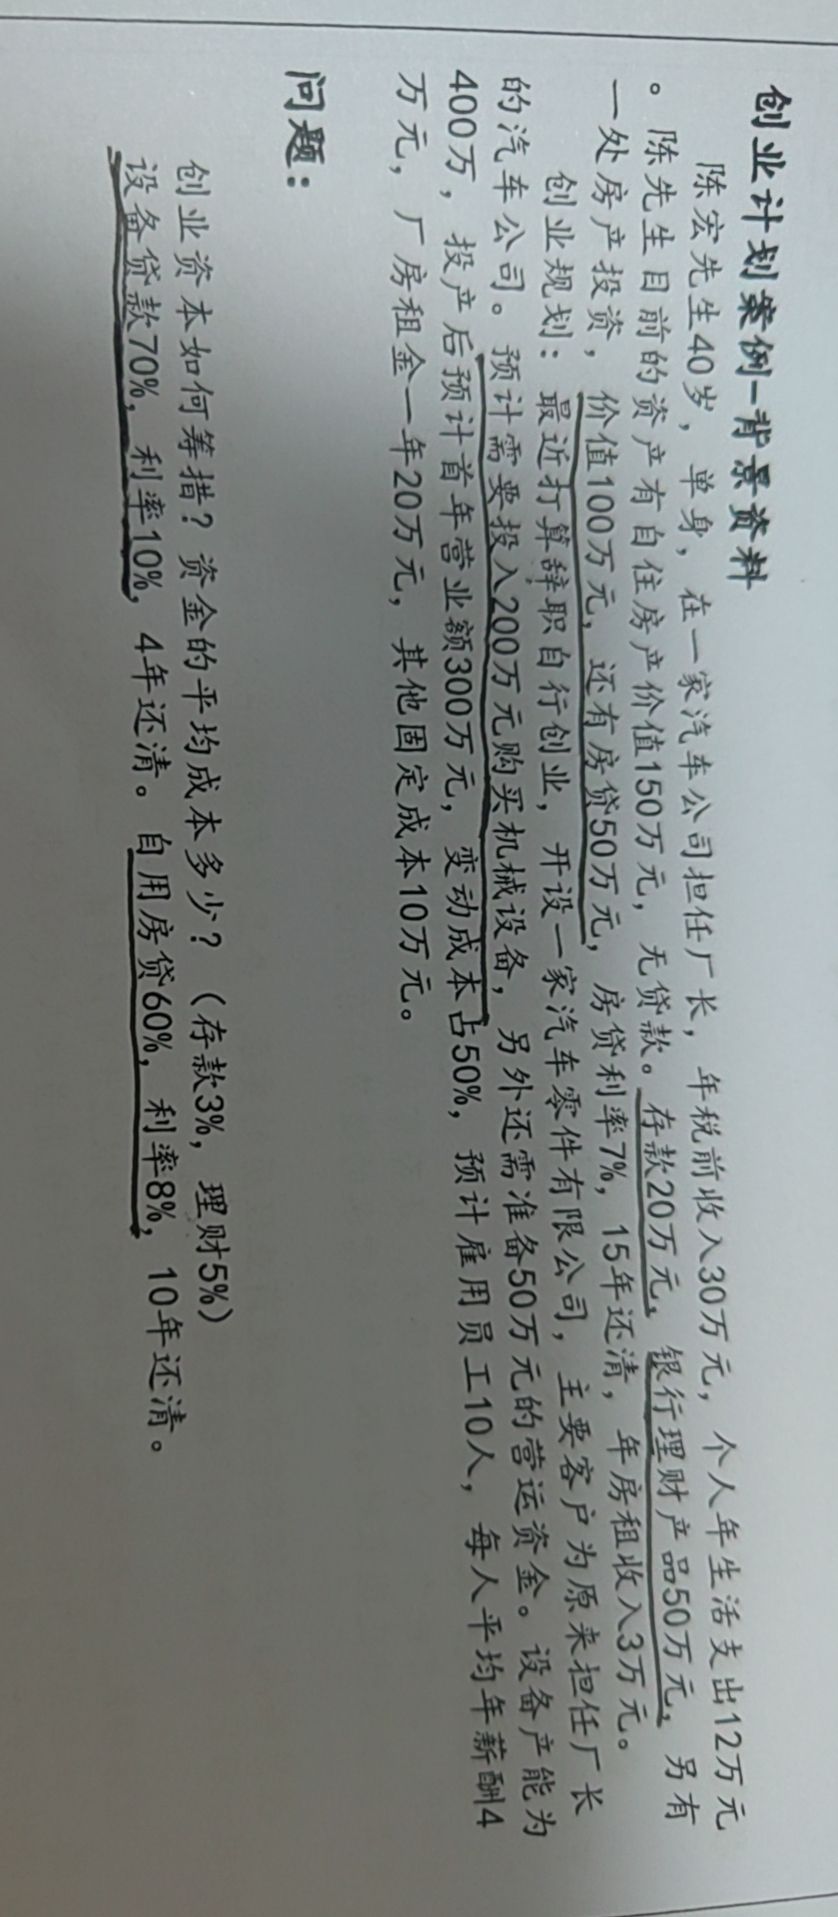 创业计划案例—背景资料
陈宏先生40岁，单身，在一家汽车公司担任厂长，年税前收入30万元，个人年生活支出12万元
。陈先生目前的资产有自住房产价值150万元，无贷款。存款20万元，银行理财产品50万元，另有
一处房产投资，价值100万元，还有房贷50万元，房贷利率7%，15年还清，年房租收入3万元。
创业规划：最近打算辞职自行创业，开设一家汽车零件有限公司，主要客户为原来担任厂长
的汽车公司。预计需要投入200万元购买机械设备，另外还需准备50万元的营运资金。设备产能为
400万，投产后预计首年营业额300万元，变动成本占50%，预计雇用员工10人，每人平均年薪酬4
万元，厂房租金一年20万元，其他固定成本10万元。
问题：
创业资本如何筹措？资金的平均成本多少？（存款3%，理财5%）
设备贷款70%，利率10%，4年还清。自用房贷60%，利率8%，10年还清。